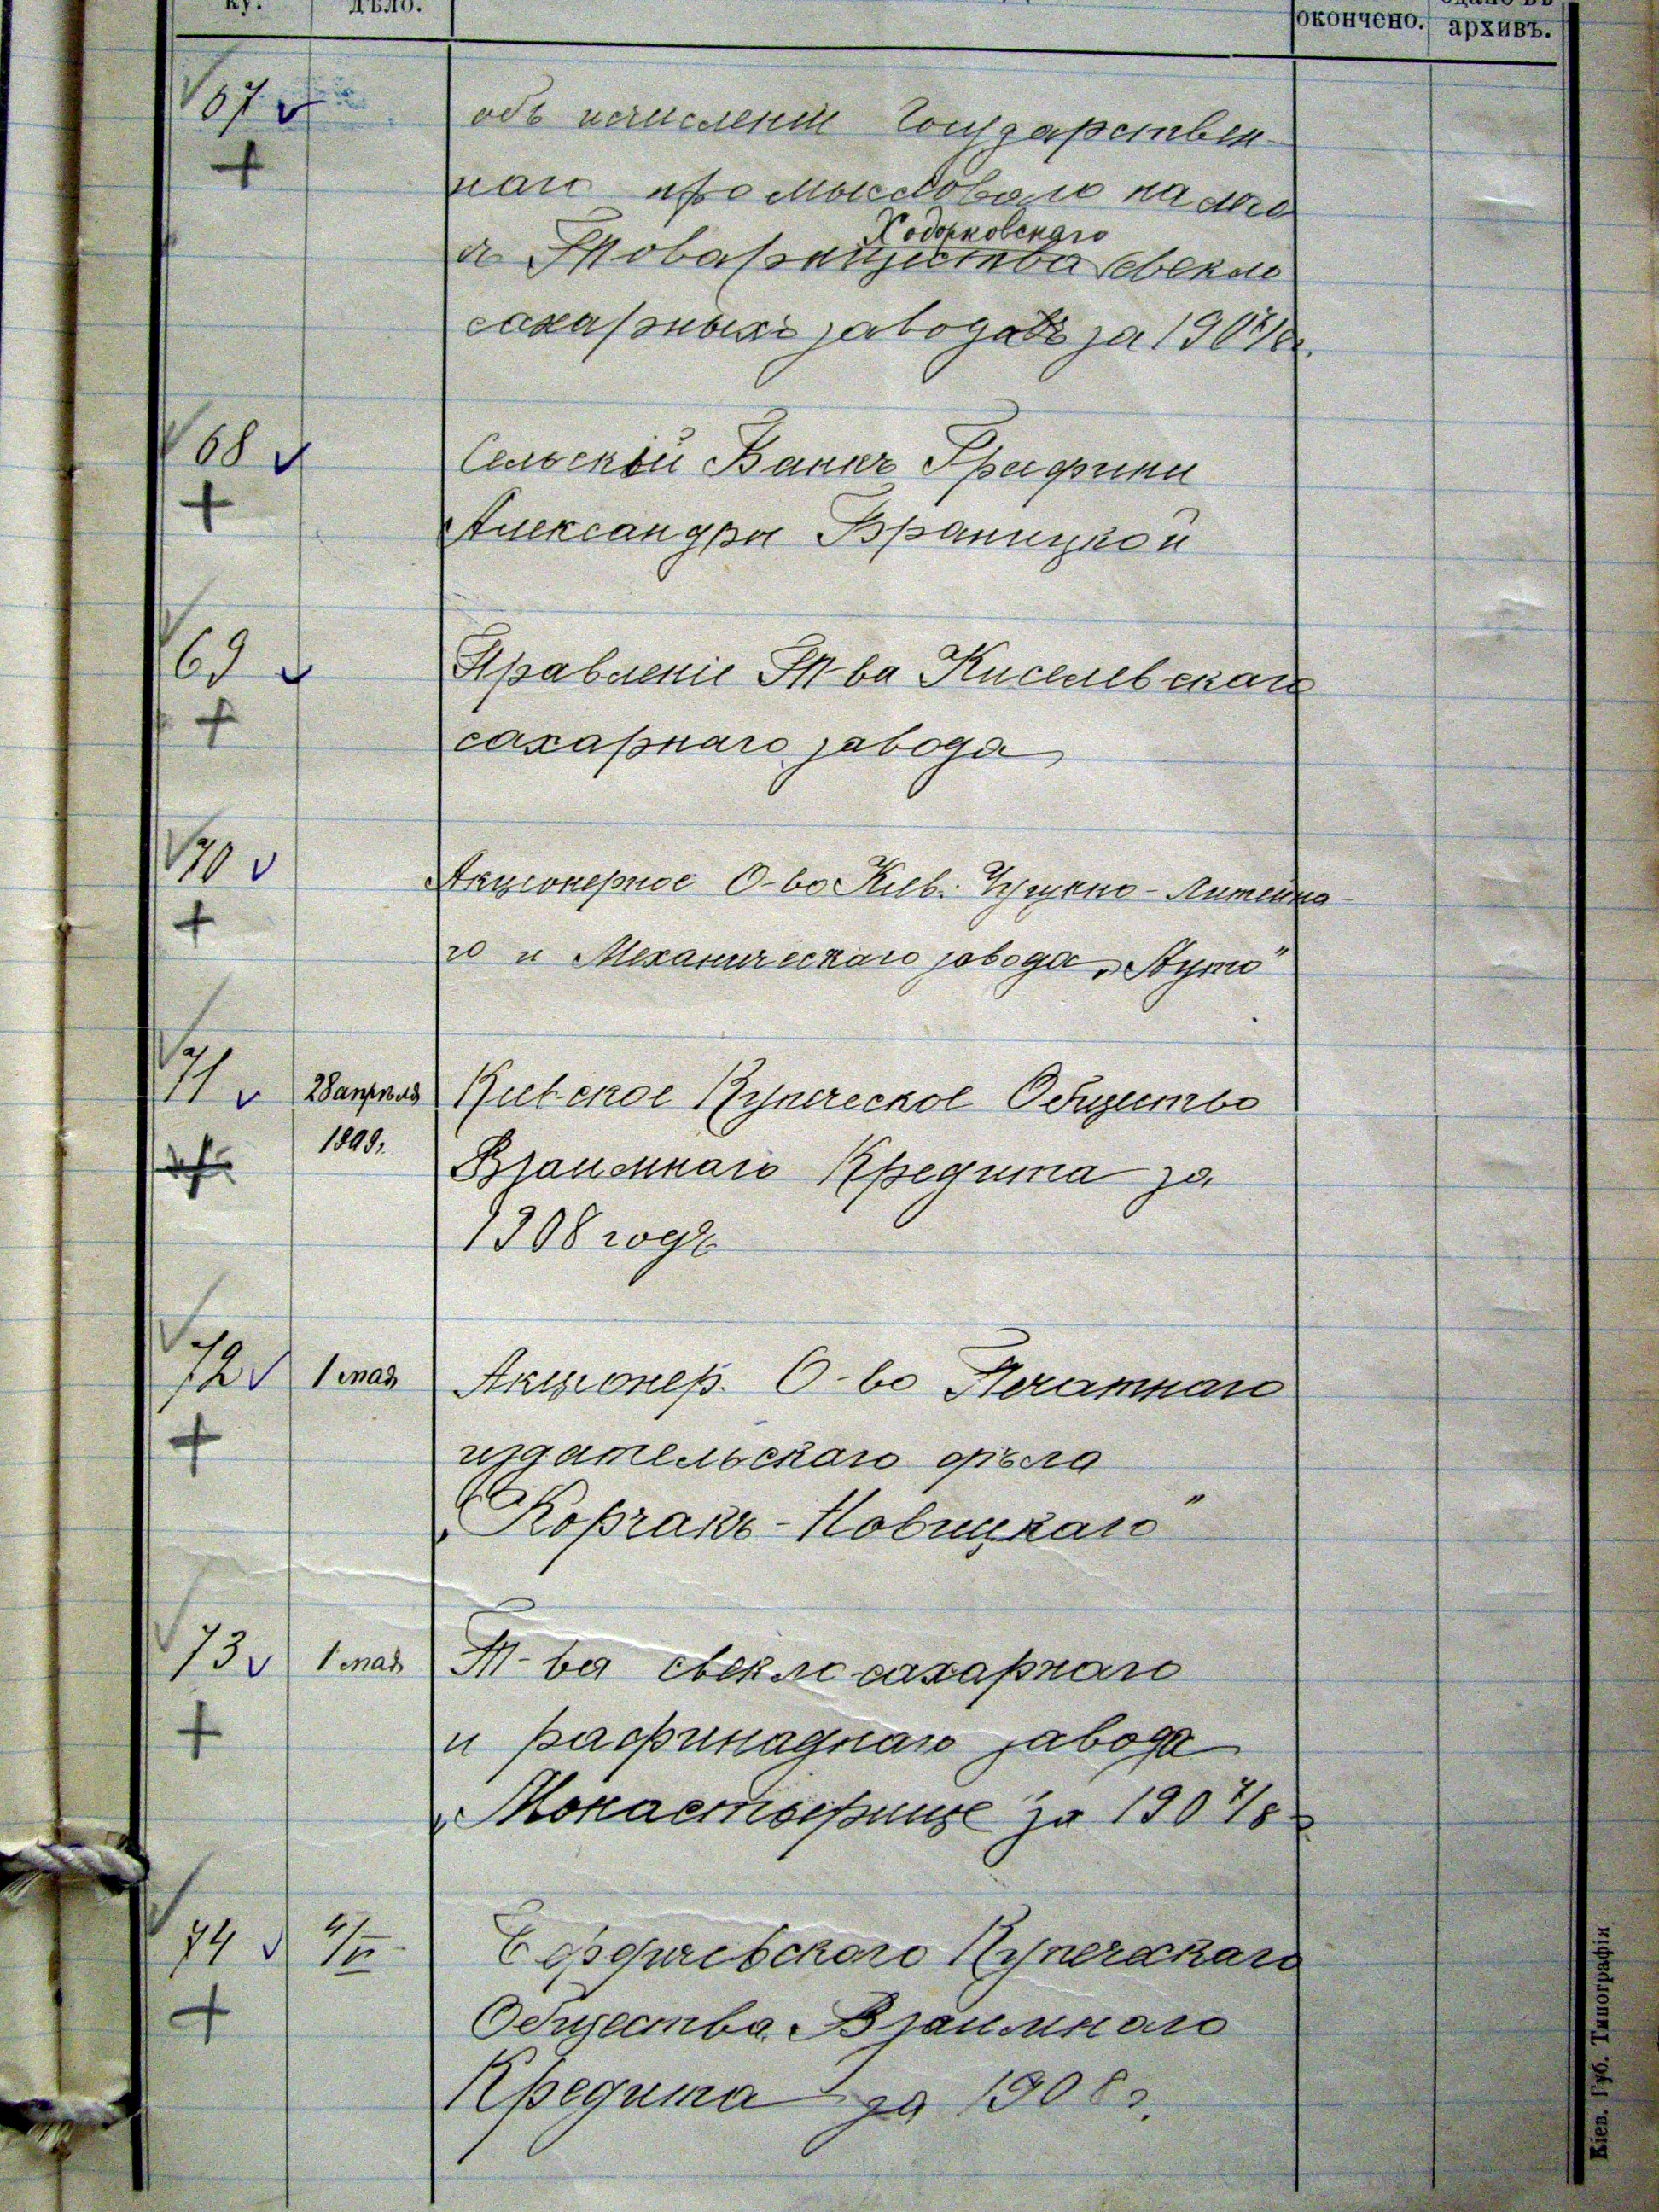 ку.
дѣло.
окончено.
сдано въ
архивъ.
67
объ исчисленіи Государствен-
наго промысловаго налого
Ходорковскаго
а Товарищества свекло
сахарныхъ заводовъ за 1907/8 г.
68
Сельскій Банкъ Графини
Александры Браницкой
69
Правленіе Т-ва Киселевскаго
сахарнаго завода
70
Акціонерное О-во Кіев. Чугунно-Литейна-
го и Механическаго завода „Ауто"
71
28 апрѣля
1909.
Кіевское Купеческое Общество
Взаимнаго Кредита за
1908 годъ
72
1 мая
Акціонер. О-во Печатнаго
издательскаго дѣла
„Корчакъ-Новицкаго"
73
1 мая
Т-ва свекло-сахарнаго
и рафинаднаго завода
„Монастырище" за 1907/8 г
74
4/V
Бердичевского Купеческаго
Общества Взаимнаго
Кредита за 1908 г.
Кіев. Губ. Типографія